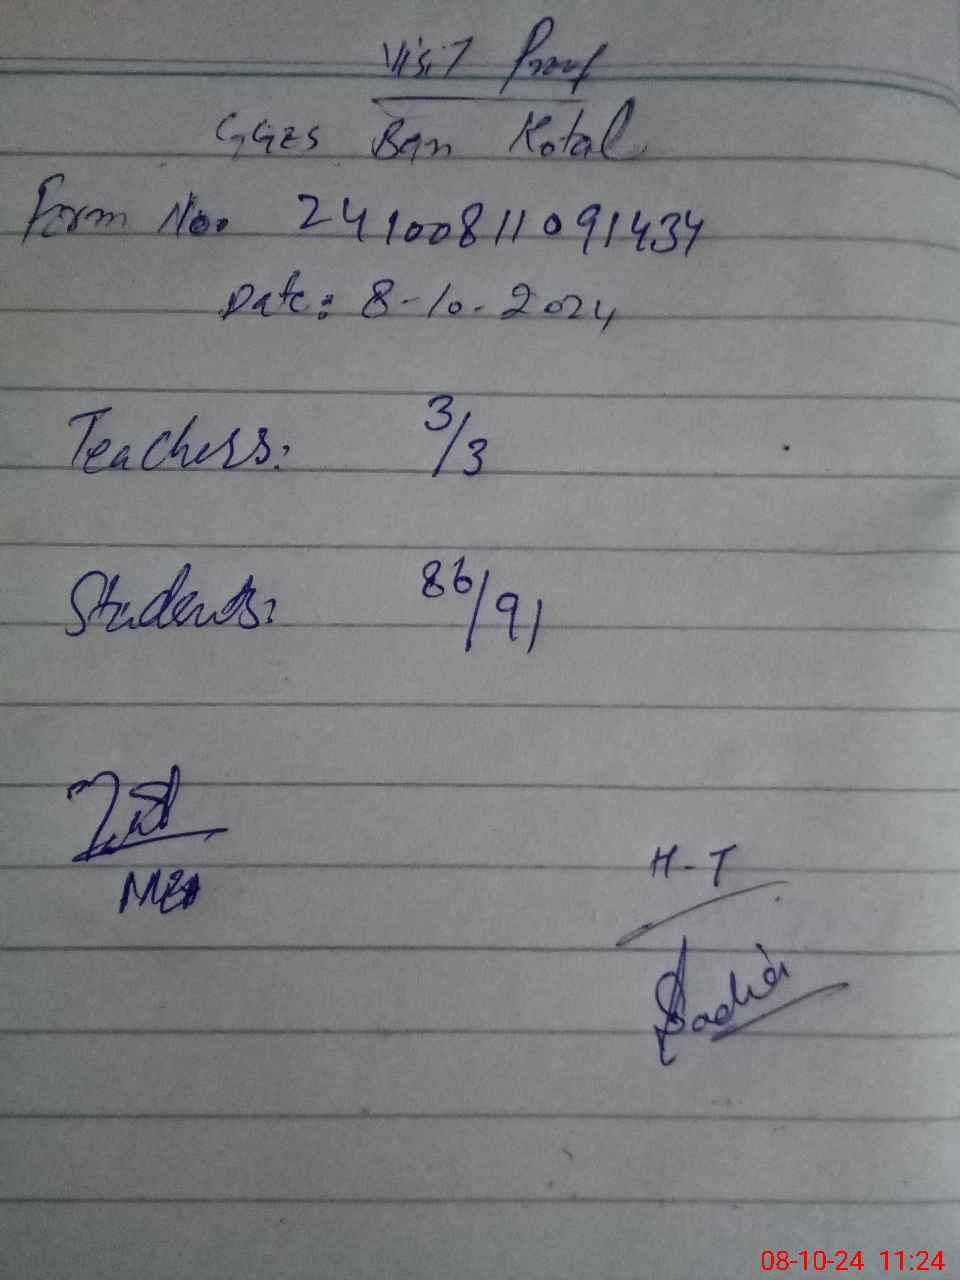 Visit Proof
GGES Ban Kotal
Form No. 24100811091434
Date: 8-10-2024
Teachers: 3/3
Students: 86/91
MEA
H-T
Sadia
08-10-24 11:24